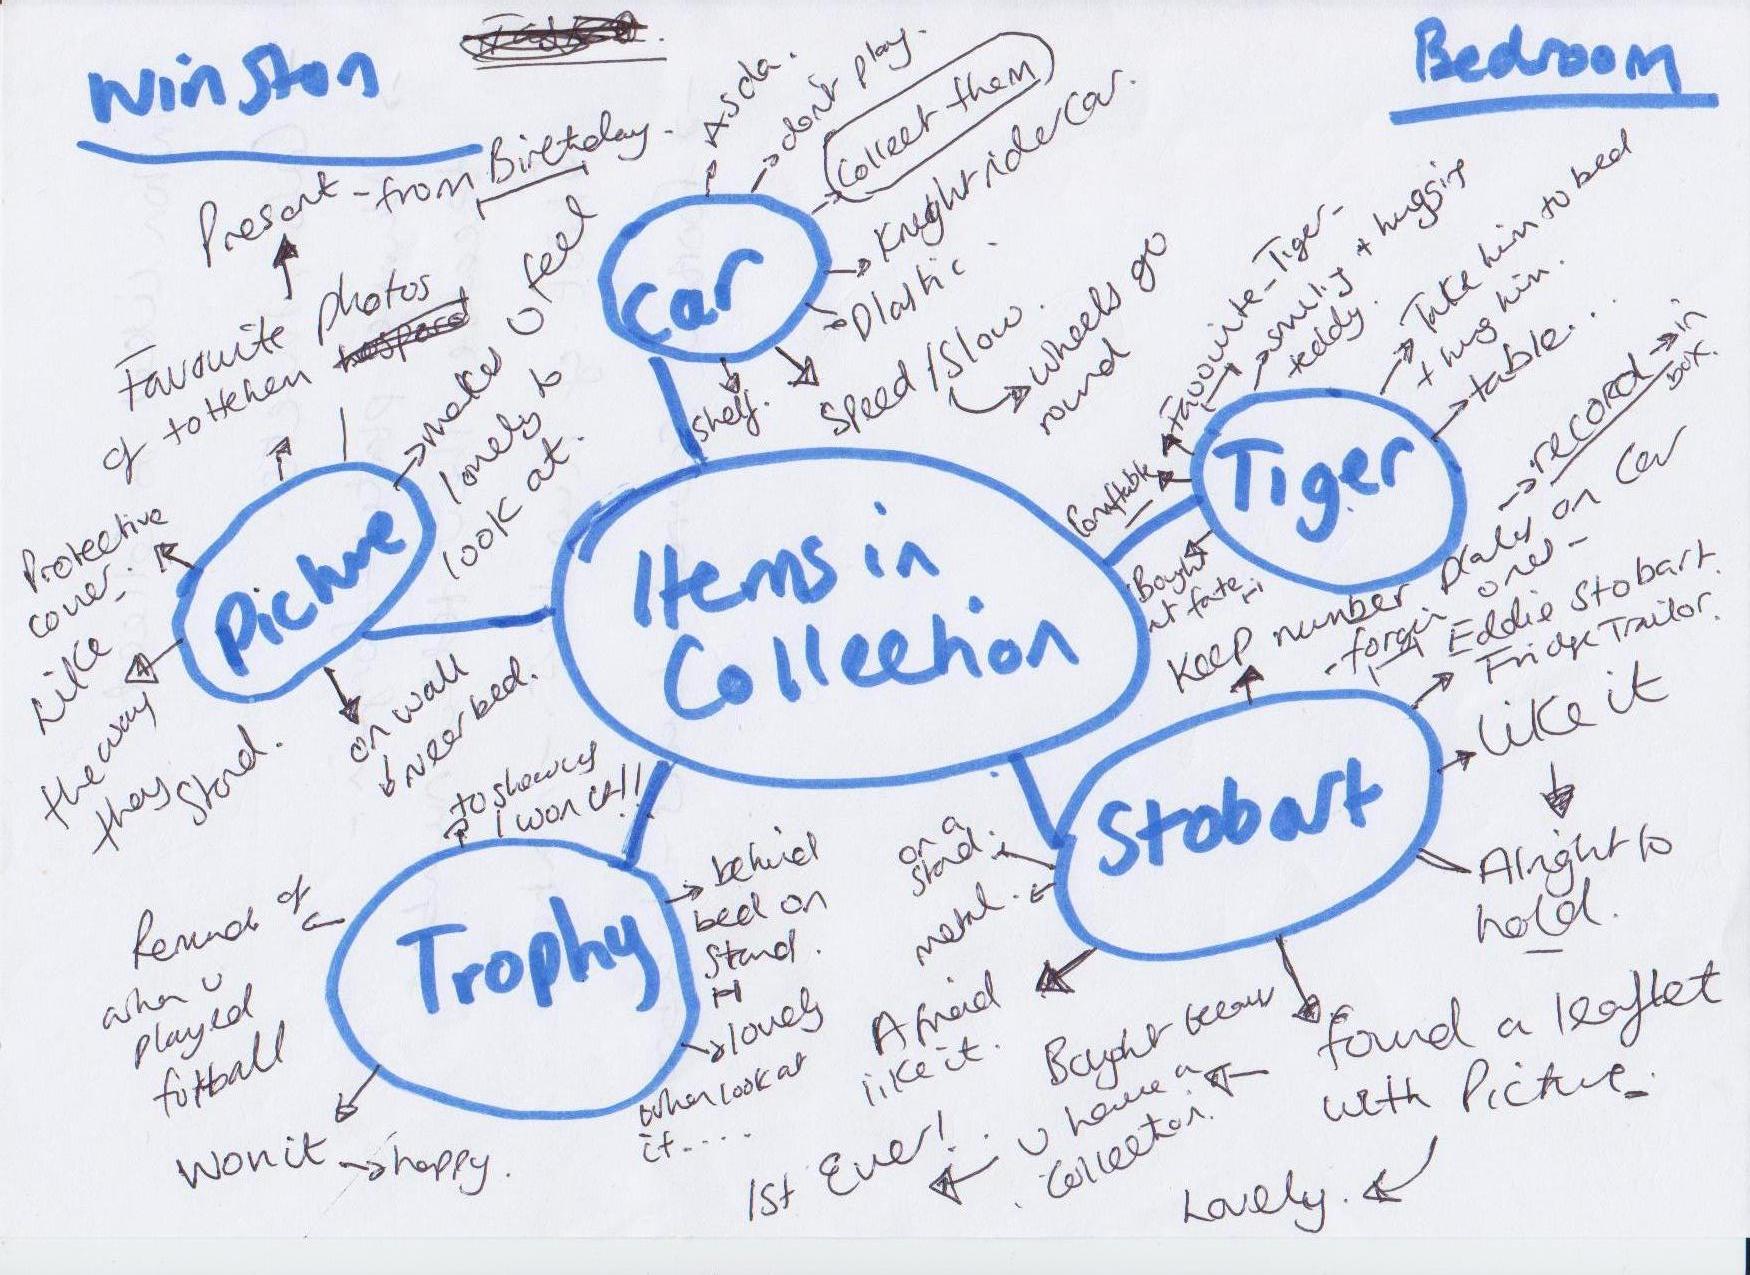 Winston
Bedroom
Items in
Collection
Car
Asda.
don't play.
Collect them
Knightrider Car.
Plastic.
Speed / Slow.
Wheels go
round
Shelf.
Tiger
Favourite - Tiger -
snuggly + hugging
teddy.
Take him to bed
+ hug him.
table...
Bought
at fate
Stobart
Keep number plates on car
- forgin ones -
record in
box.
Eddie Stobart
Fridge Trailor.
Like it
Alright to
hold.
Found a leaflet
with Picture.
Lovely.
Bought because
U have a
collection.
1st Ever!
Afraid
like it.
metal.
on a
stand.
Trophy
to show us
I won it!!
behind
bed on
stand.
lovely
when look at
it.....
Won it
happy.
Reminds of
when U
played
football
Picture
on wall
near bed.
Like
the way
they stand.
Protective
cover.
Favourite photos
of tottenham
Present - from Birthday.
makes U feel
lovely to
look at.